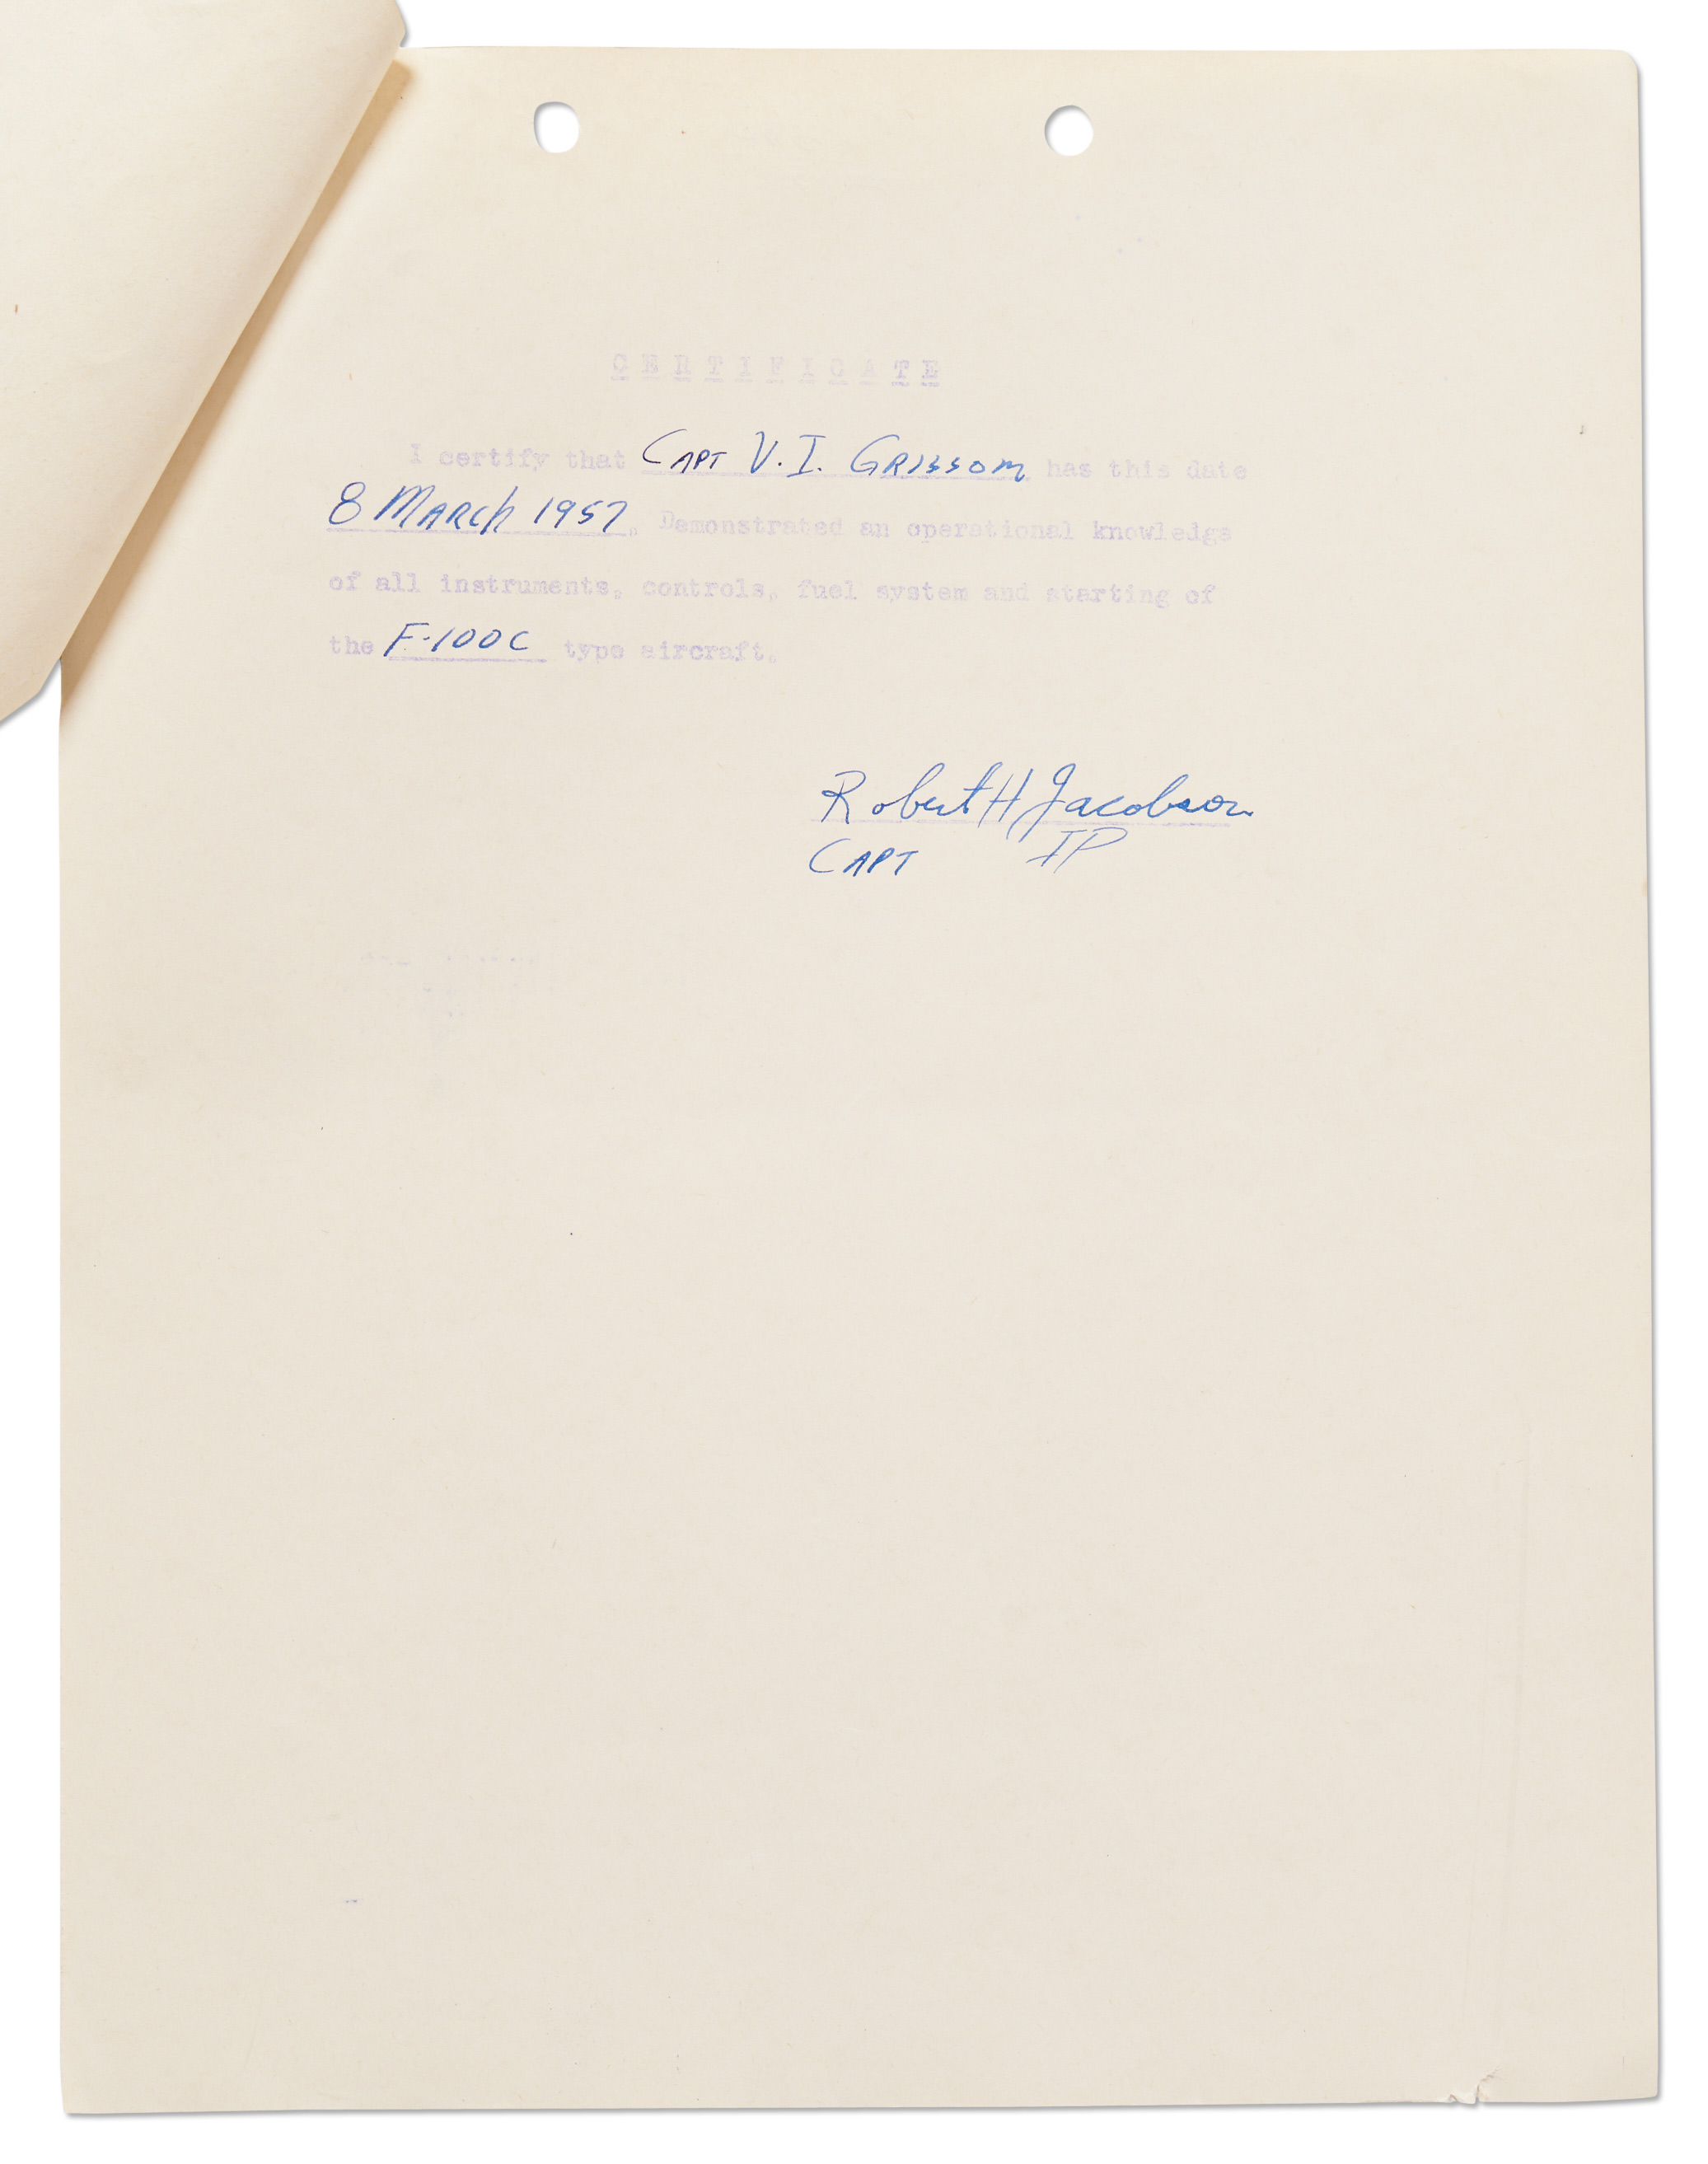 CERTIFICATE
I certify that CAPT V. I. GRISSOM has this date
8 MARCh 1957. Demonstrated an operational knowledge
of all instruments, controls, fuel system and starting of
the F-100C type aircraft.
Robert H Jacobson
CAPT IP